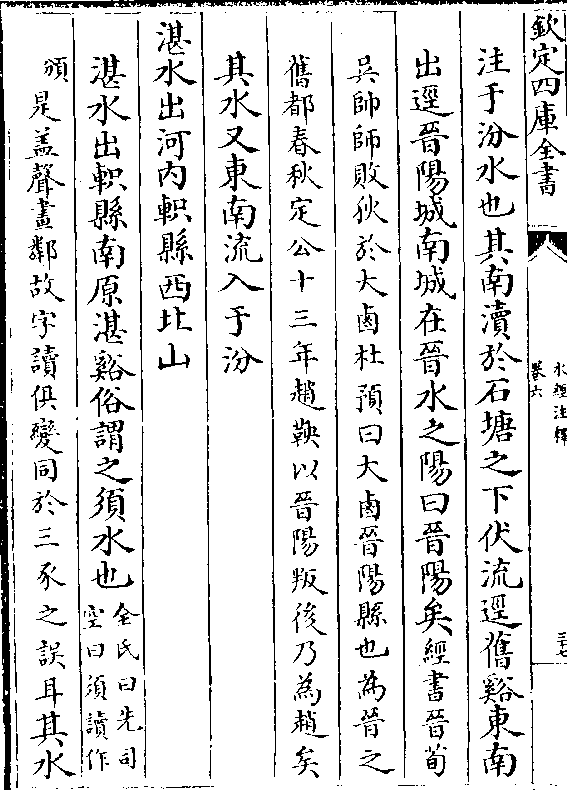 欽定四庫全書
水經注釋
卷六
三十七
注于汾水也其南瀆於石塘之下伏流逕舊谿東南
出逕晉陽城南城在晉水之陽曰晉陽矣經書晉荀
吳帥師敗狄於大鹵杜預曰大鹵晉陽縣也為晉之
舊都春秋定公十三年趙鞅以晉陽叛後乃為趙矣
其水又東南流入于汾
湛水出河內軹縣西北山
湛水出軹縣南原湛谿俗謂之須水也全氏曰先司
空曰須讀作
頒是盖聲畫鄰故字讀俱變同於三豕之誤耳其水